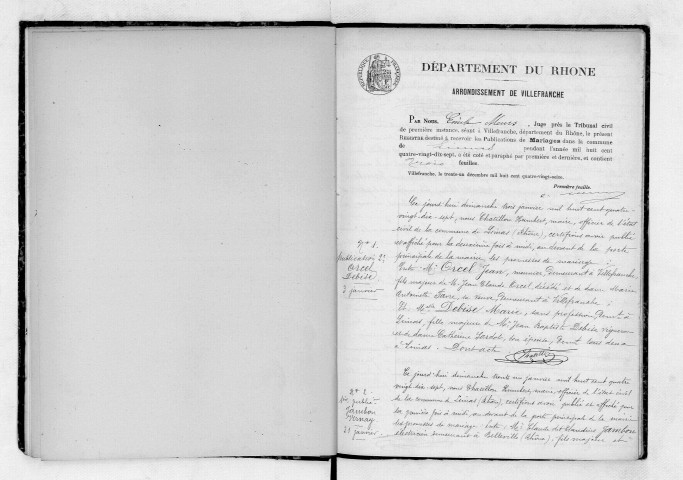 DÉPARTEMENT DU RHONE
ARRONDISSEMENT DE VILLEFRANCHE
RÉPUBLIQUE FRANÇAISE
PAR NOUS, Juge près le Tribunal civil
de première instance, séant à Villefranche, département du Rhône, le présent
REGISTRE destiné à recevoir les Publications de Mariages dans la commune
de Limas pendant l'année mil huit cent
quatre-vingt-dix-sept, a été coté et paraphé par première et dernière, et contient
trois feuilles.
Villefranche, le trente-un décembre mil huit cent quatre-vingt-seize.
Première feuille.
N° 1
Publication 2e
Orcel
Debise
3 janvier
Ce jourd'hui dimanche trois janvier mil huit cent quatre
vingt-dix-sept, nous Chatillon Humbert, maire, officier de l'état
civil de la commune de Limas (Rhône), certifions avoir publié
et affiché pour la deuxième fois à midi, au devant de la porte
principale de la mairie, les promesses de mariage :
Entre Mr Orcel Jean, demeurant à Villefranche,
fils majeur de Mr Jean Claude Orcel décédé et de dame Marie
Antoinette sa veuve, demeurant à Villefranche ;
Et Mlle Debise Marie, sans profession, demt à
Limas, fille majeure de Mr Jean Baptiste Debise vigneron
et de dame Catherine son épouse, demt tous deux
à Limas. Dont acte
N° 2
1re publié
Jambon
31 janvier
Ce jourd'hui dimanche trente un janvier mil huit cent quatre
vingt dix sept, nous Chatillon Humbert, maire, officier de l'état civil
de la commune de Limas (Rhône), certifions avoir publié et affiché pour
la première fois à midi, au devant de la porte principale de la mairie
les promesses de mariage : Entre : Mr Claude dit Claudius Jambon
demeurant à Belleville (Rhône), fils majeur